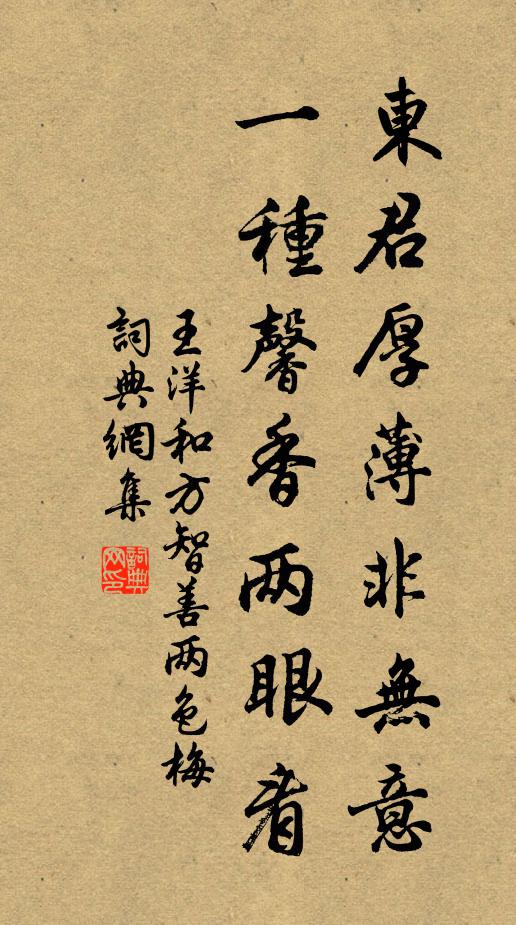 東君厚薄非無意
一種馨香两眼看
王洋和方智善两色梅
詞典網集
詞典
网印